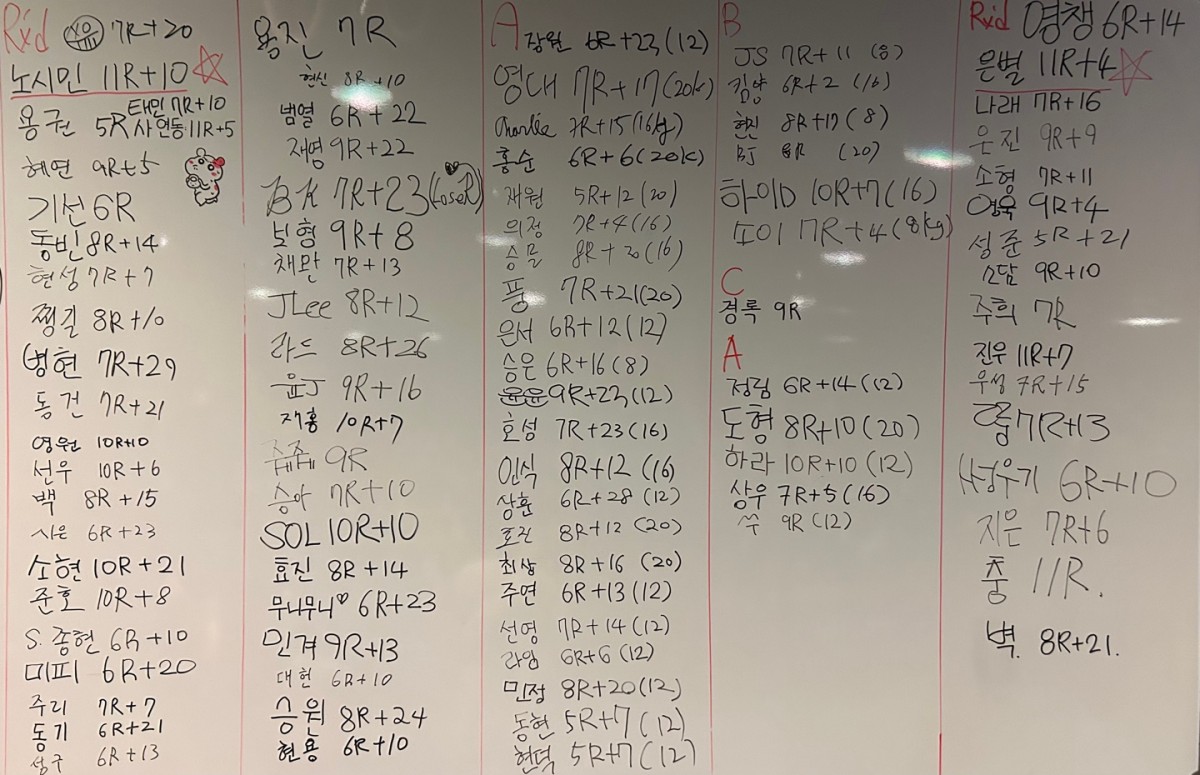 Rxd
7R+20
노시민 11R+10
태민 7R+10
용권 5R 사연동 11R+5
혜연 9R+5
기선 6R
동빈 8R+14
현성 7R+7
쨍길 8R+10
병현 7R+29
동건 7R+21
영원 10R+10
선우 10R+6
백 8R+15
시은 6R+23
소현 10R+21
준호 10R+8
S. 종현 6R+10
미피 6R+20
주리 7R+7
동기 6R+21
성구 6R+13
용진 7R
현신 8R+10
범열 6R+22
재영 9R+22
BK 7R+23 (LoseR)
보형 9R+8
채완 7R+13
JLee 8R+12
라드 8R+26
윤J 9R+16
재홍 10R+7
쥬쥬 9R
승아 7R+10
SOL 10R+10
효진 8R+14
무니무니♡ 6R+23
민겨 9R+13
대헌 6R+10
승원 8R+24
현용 6R+10
A
장원 6R+23 (12)
영대 7R+17 (20k)
Charlie 7R+15 (16kg)
홍순 6R+6 (20k)
재원 5R+12 (20)
의정 7R+4 (16)
승믈 8R+20 (16)
풍 7R+21 (20)
은서 6R+12 (12)
승은 6R+16 (8)
윤윤 9R+23 (12)
호성 7R+23 (16)
인식 8R+12 (16)
상훈 6R+28 (12)
호진 8R+12 (20)
최상 8R+16 (20)
주연 6R+13 (12)
선영 7R+14 (12)
라임 6R+6 (12)
민정 8R+20 (12)
동현 5R+7 (12)
현덕 5R+7 (12)
B
JS 7R+11
김양 6R+2 (16)
현진 8R+17 (8)
BJ 8R (20)
하이D 10R+7 (16)
또이 7R+4 (8kg)
C
경록 9R
A
정림 6R+14 (12)
도형 8R+10 (20)
하라 10R+10 (12)
상우 7R+5 (16)
쑤 9R (12)
Rxd 영챙 6R+14
은별 11R+4
나래 7R+16
은진 9R+9
소형 7R+11
영욱 9R+4
성준 5R+21
소담 9R+10
주희 7R
진우 11R+7
우성 7R+15
7R+13
6R+10
지은 7R+6
충 11R.
벽. 8R+21.